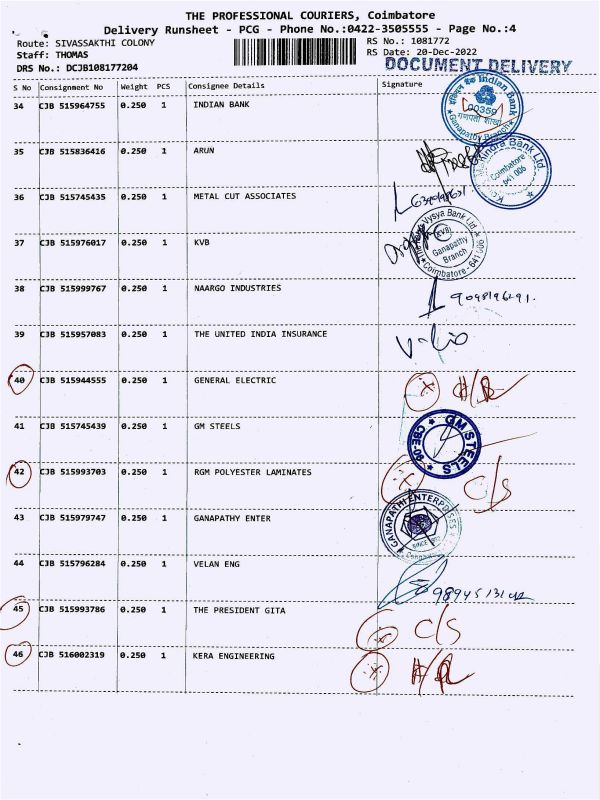 THE PROFESSIONAL COURIERS, Coimbatore
Delivery Runsheet - PCG - Phone No.:0422-3505555 - Page No.:4
Route: SIVASSAKTHI COLONY
RS No.: 1081772
Staff: THOMAS
RS Date: 20-Dec-2022
DRS No.: DCJB108177204
DOCUMENT DELIVERY
S No Consignment No Weight PCS Consignee Details Signature
34 CJB 515964755 0.250 1 INDIAN BANK
Indian Bank
00359
गणपती शाखा
Ganapathy Branch
35 CJB 515836416 0.250 1 ARUN
Mahindra Bank Ltd
Coimbatore
641 006
36 CJB 515745435 0.250 1 METAL CUT ASSOCIATES
37 CJB 515976017 0.250 1 KVB
Vysya Bank Ltd
KVB
Ganapathy
Branch
Coimbatore - 641 006
38 CJB 515999767 0.250 1 NAARGO INDUSTRIES
39 CJB 515957083 0.250 1 THE UNITED INDIA INSURANCE
40 CJB 515944555 0.250 1 GENERAL ELECTRIC
41 CJB 515745439 0.250 1 GM STEELS
GM STEELS
42 CJB 515993703 0.250 1 RGM POLYESTER LAMINATES
C/S
43 CJB 515979747 0.250 1 GANAPATHY ENTER
GANAPATHI ENTERPRISES
44 CJB 515796284 0.250 1 VELAN ENG
45 CJB 515993786 0.250 1 THE PRESIDENT GITA
C/S
46 CJB 516002319 0.250 1 KERA ENGINEERING